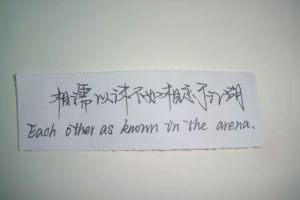 相濡以沫不如相忘于江湖
Each other as known in the arena.